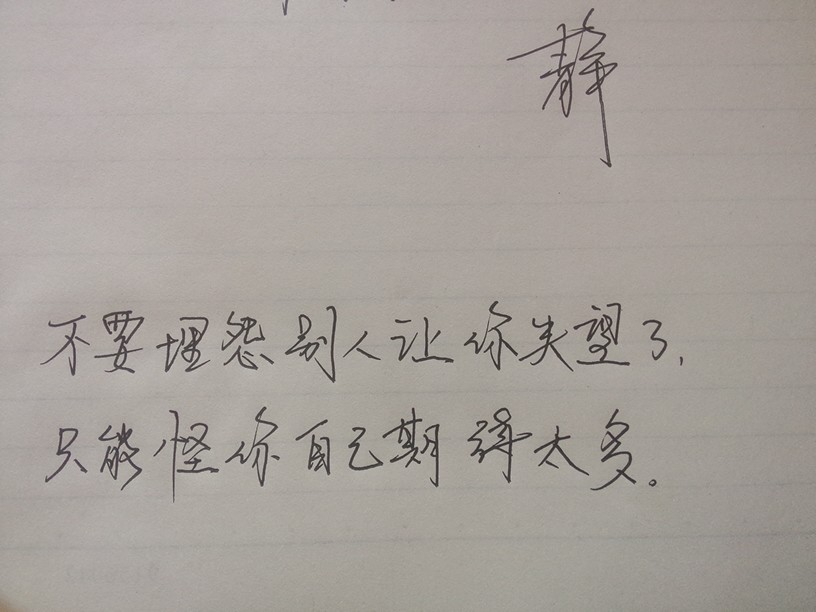 静
不要埋怨别人让你失望了,
只能怪你自己期待太多。